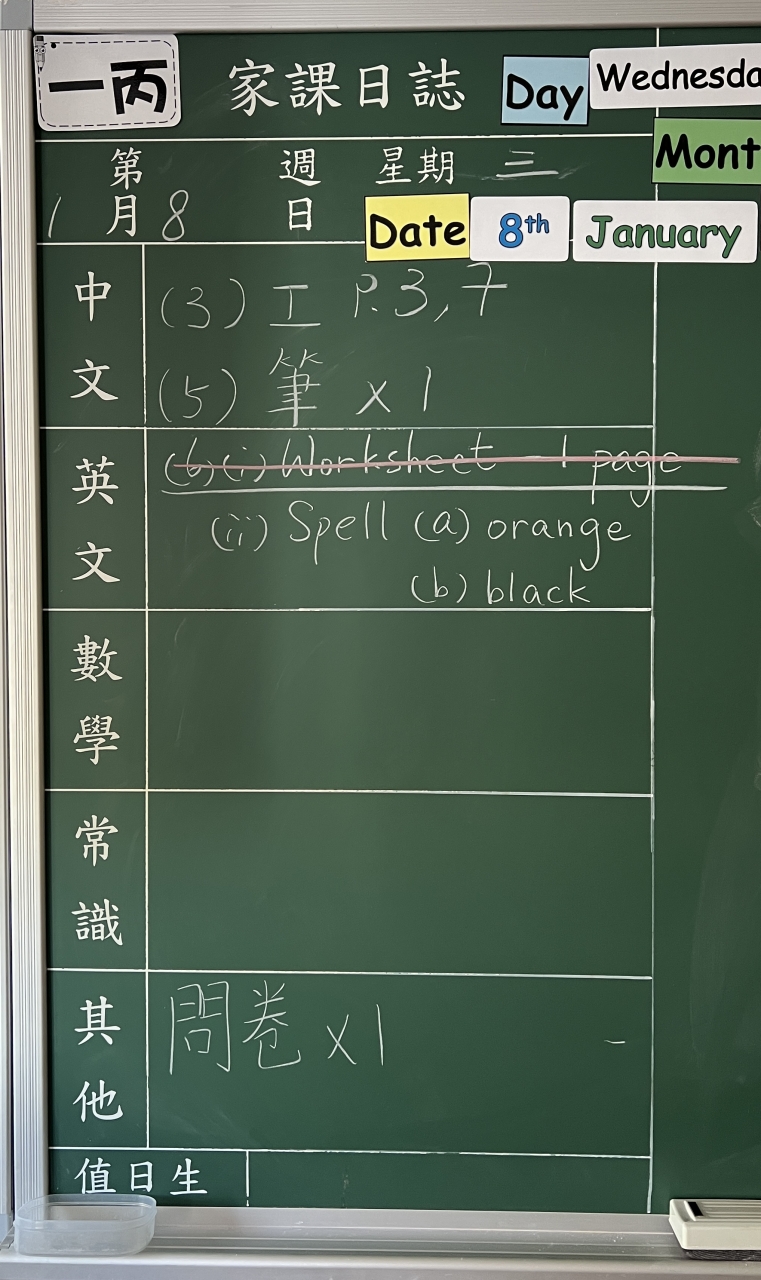 一丙 家課日誌 Day Wednesda
Mont
第 週 星期 三
1 月 8 日 Date 8th January
中文 (3) 工 P.3,7
(5) 筆 x 1
英文 (6)(i) Worksheet - 1 page
(ii) Spell (a) orange
(b) black
數學
常識
其他 問卷 x1
值日生